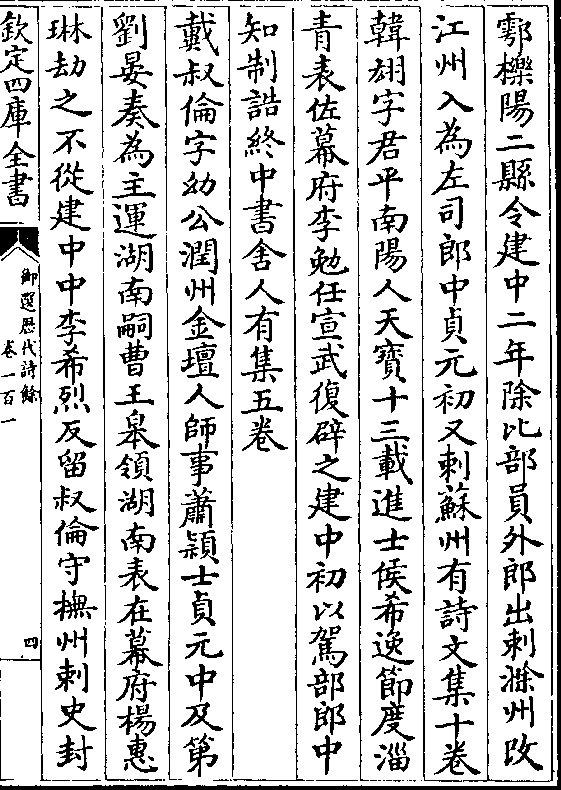 鄠櫟陽二縣令建中二年除比部員外郎出刺滁州改
江州入為左司郎中貞元初又刺蘇州有詩文集十卷
韓翃字君平南陽人天寶十三載進士侯希逸節度淄
青表佐幕府李勉任宣武復辟之建中初以駕部郎中
知制誥終中書舍人有集五卷
戴叔倫字幼公潤州金壇人師事蕭穎士貞元中及第
劉晏奏為主運湖南嗣曹王皋領湖南表在幕府楊惠
琳劫之不從建中中李希烈反留叔倫守撫州刺史封
欽定四庫全書
御選歷代詩餘
卷一百一
四